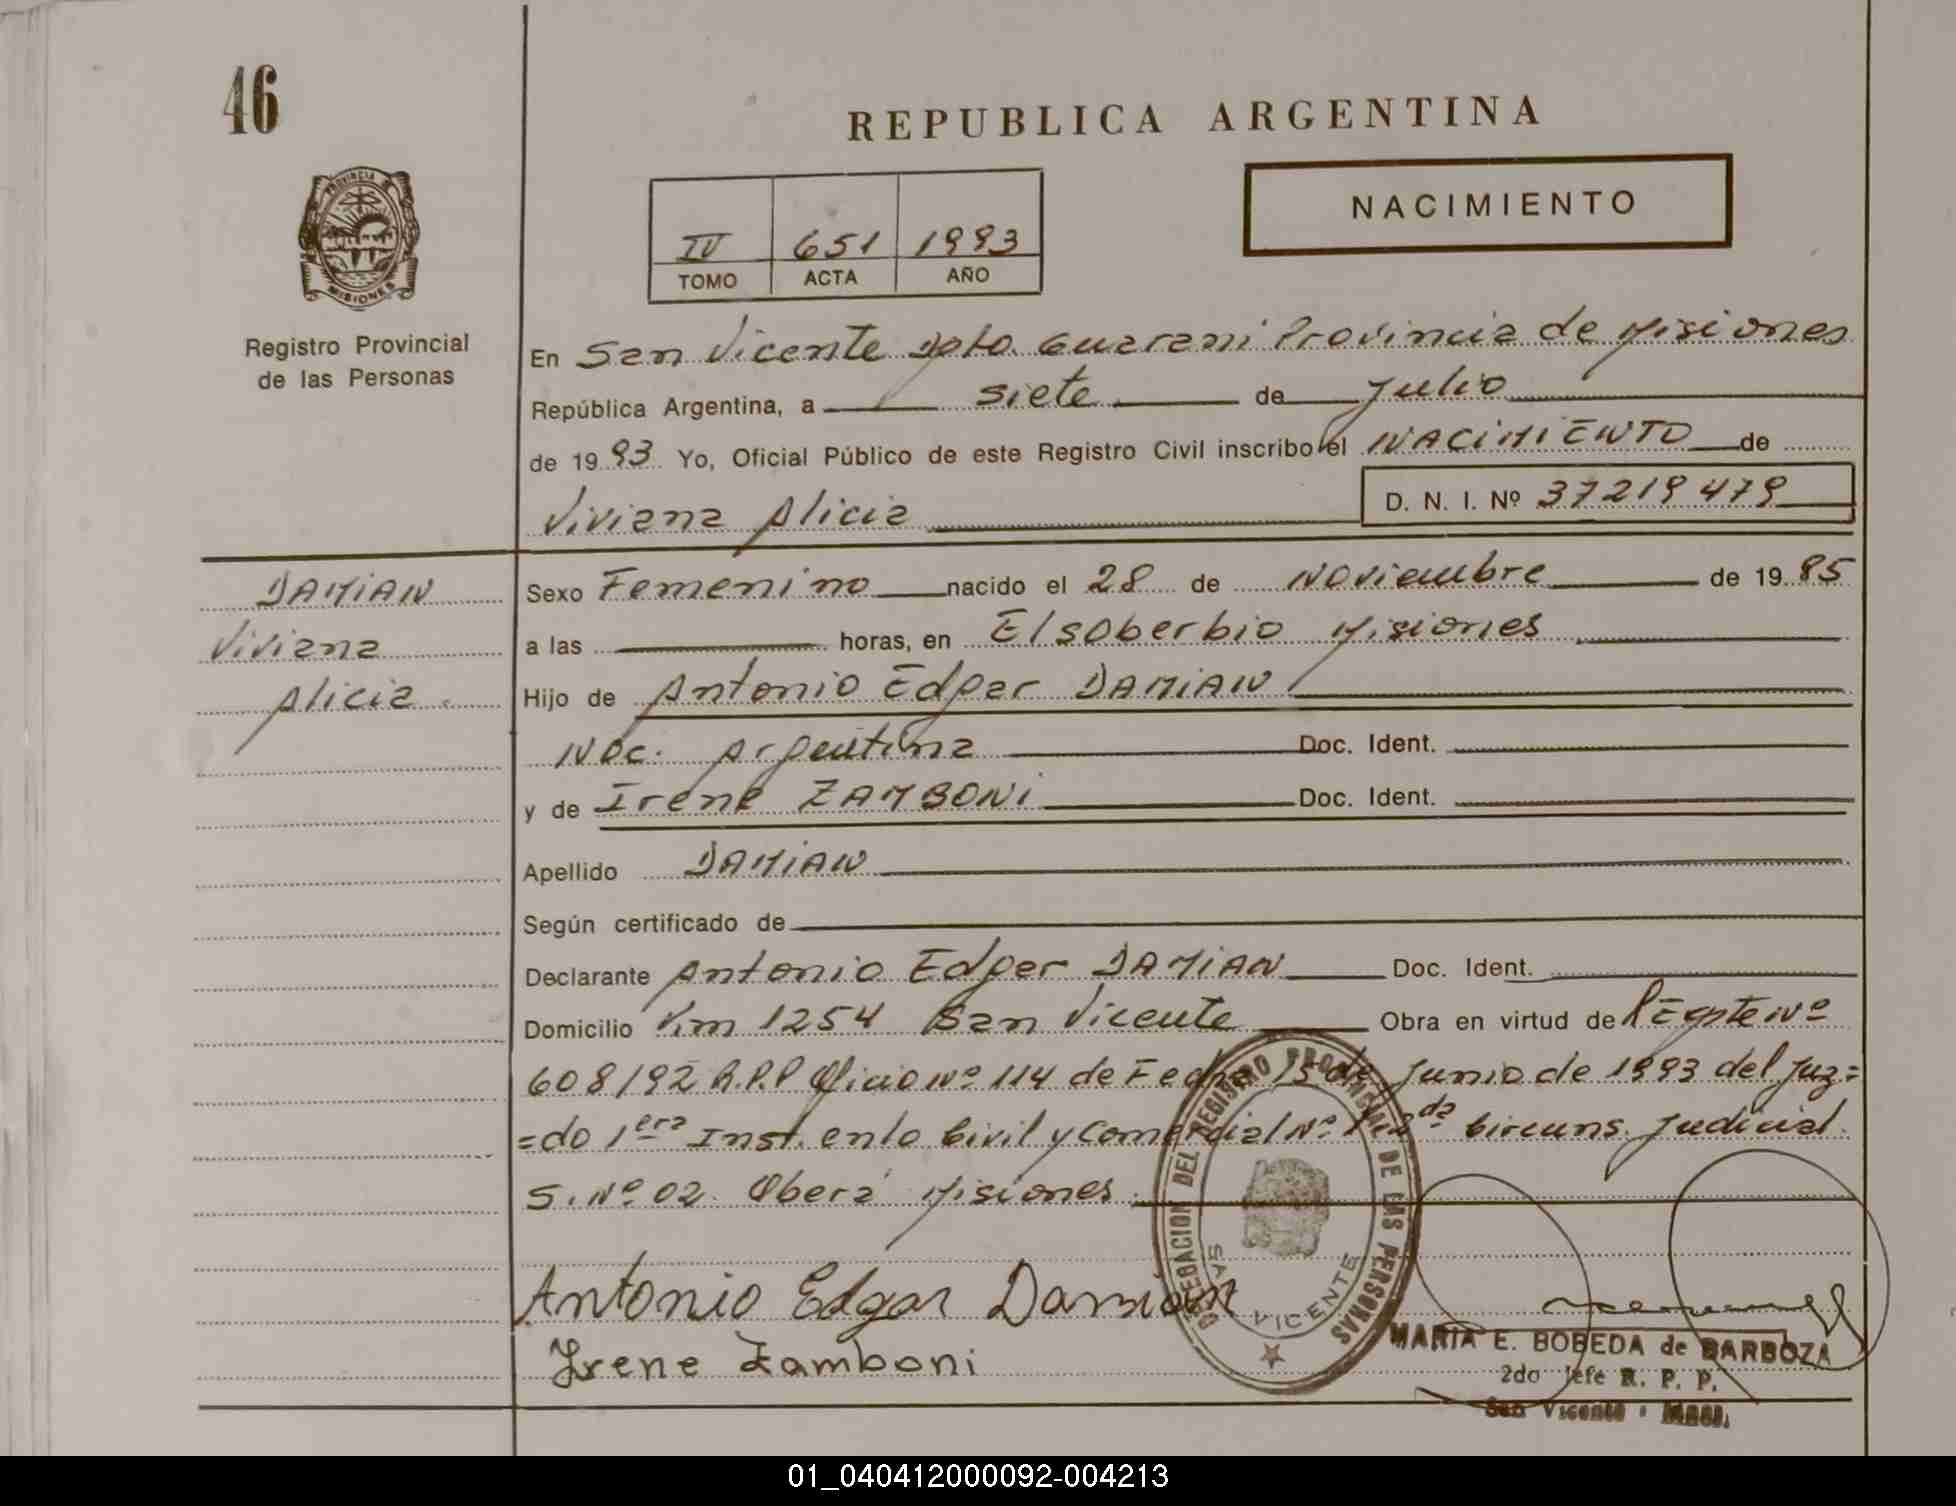 46
REPUBLICA ARGENTINA
PROVINCIA DE
MISIONES
NACIMIENTO
IV 651 1993
TOMO ACTA AÑO
Registro Provincial
de las Personas
En San Vicente Dpto. Guarani Provincia de Misiones
República Argentina, a siete de Julio
de 1993 Yo, Oficial Público de este Registro Civil inscribo el NACIMIENTO de
Viviana Alicia D. N. I. Nº 37219479
DAMIAN
Viviana
Alicia.
Sexo Femenino nacido el 28 de Noviembre de 1985
a las horas, en El soberbio Misiones
Hijo de Antonio Edgar DAMIAN
Nac. Argentina Doc. Ident.
y de Irene ZAMBONI Doc. Ident.
Apellido DAMIAN
Según certificado de
Declarante Antonio Edgar DAMIAN Doc. Ident.
Domicilio Km 1254 San Vicente Obra en virtud del Expte Nº
608/92 R.P.P Oficio Nº 114 de Fecha 15 de Junio de 1993 del Juz=
=do 1era Inst. en lo Civil y Comercial Nº 1 2da Circuns. Judicial.
S. Nº 02. Oberá Misiones.
DELEGACION DEL REGISTRO PROVINCIAL DE LAS PERSONAS
SAN VICENTE
Antonio Edgar Damián
Irene Zamboni
MARIA E. BOBEDA de BARBOZA
2do Jefe R. P. P.
San Vicente - Mnes.
01_040412000092-004213